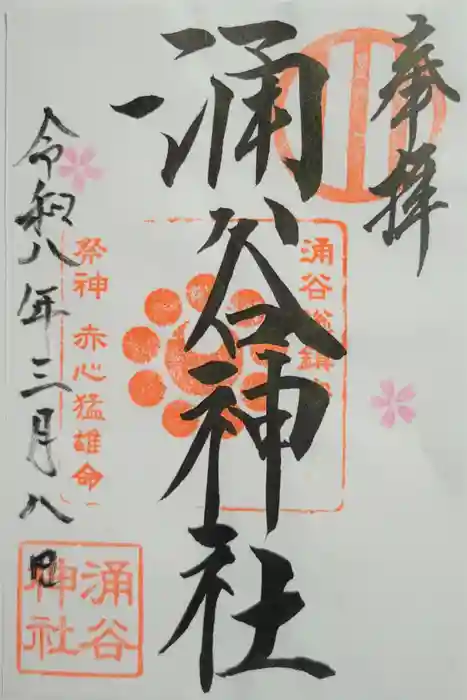 奉拝
涌谷総鎮
涌谷神社
祭神 赤心猛雄命
令和八年三月八日
涌谷
神社